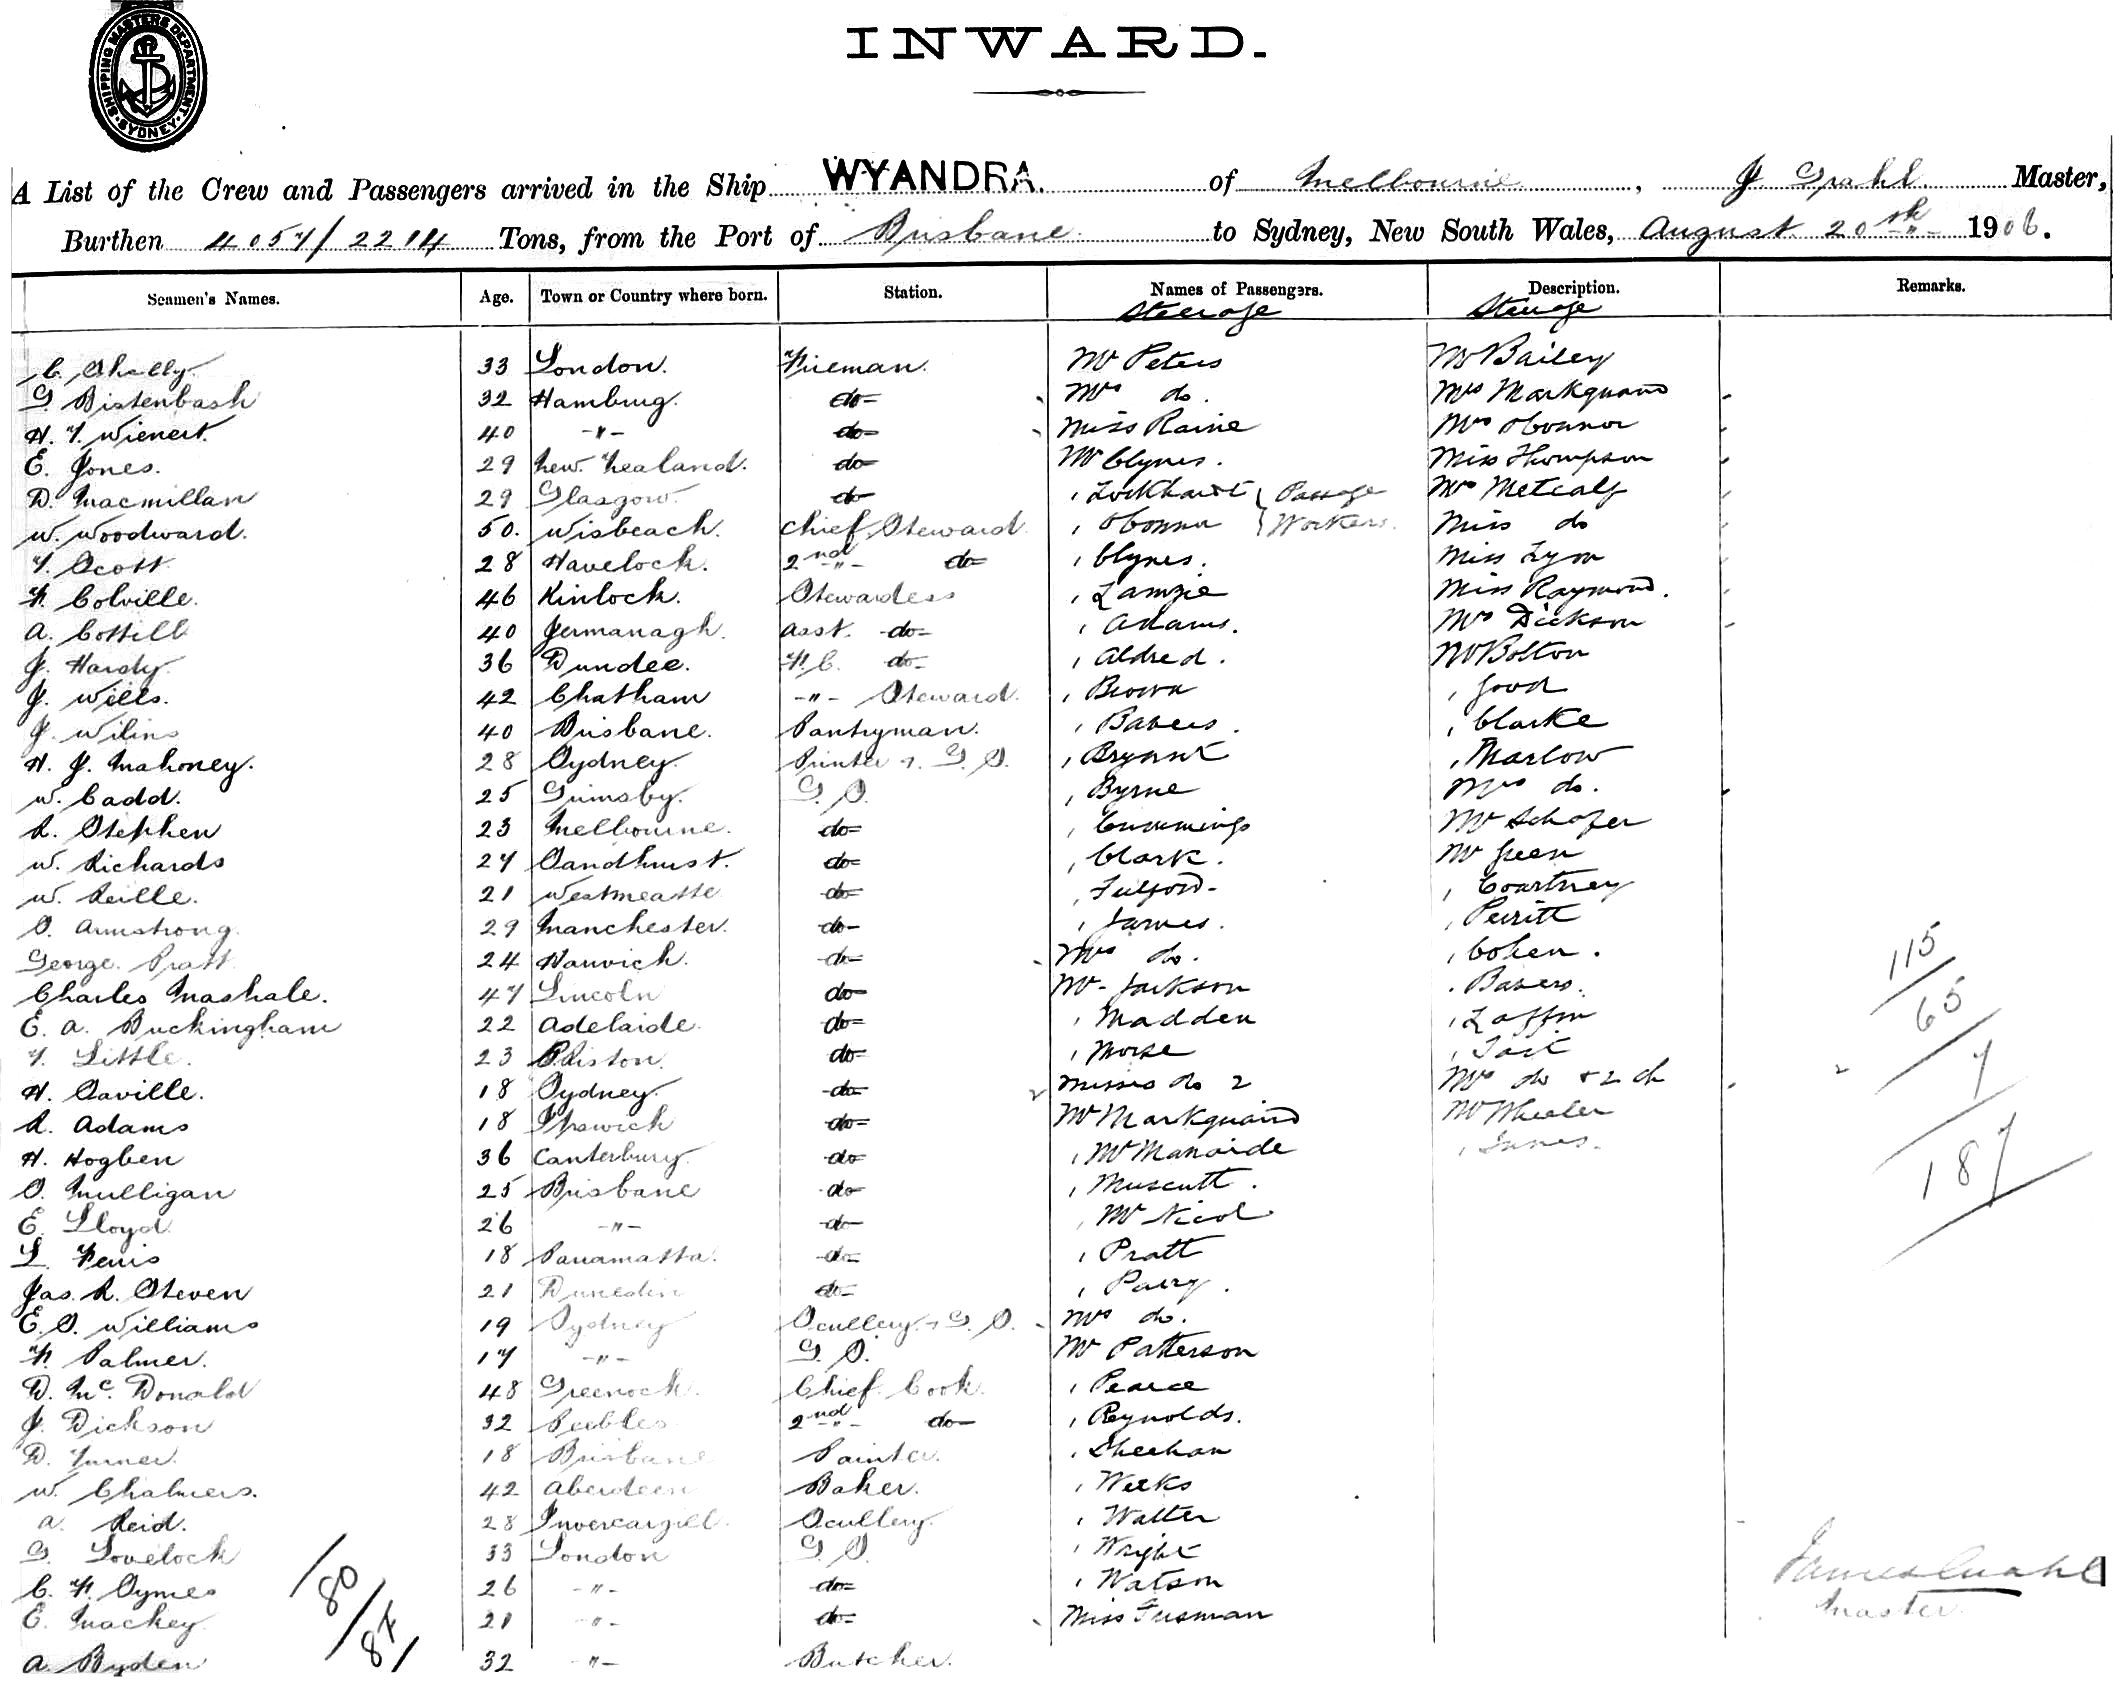 SHIPPING MASTERS DEPARTMENT SYDNEY
INWARD.
A List of the Crew and Passengers arrived in the Ship WYANDRA. of Melbourne, J Grahl Master,
Burthen 4057/2214 Tons, from the Port of Brisbane to Sydney, New South Wales, August 20th 1906.
Seamen's Names. Age. Town or Country where born. Station. Names of Passengers. Description. Remarks.
Steerage Steerage
C. Skelly 33 London. Fireman. Mr Peters Mr Bailey
G. Bistenbash 32 Hamburg. do Mrs do. Mrs Markquand
H. T. Wienert. 40 -"- do Miss Raine Mrs Oconnor
E. Jones. 29 New Zealand. do Mr Clynes. Miss Thompson
D. Macmillan 29 Glasgow. do , Lockhart { Passage Mrs Metcalf
W. Woodward. 50. Wisbeach. Chief Steward , Oconnor { Workers. Miss do
T. Scott 28 Havelock. 2nd -"- do , Clynes. Miss Lyon
F. Colville. 46 Kinlock. Stewardess , Lamzie Miss Raymond.
A. Cottill 40 Fermanagh. Asst. do , Adams. Mrs Dickson
J. Hardy. 36 Dundee. F.C. do , Aldred. Mr Bolton
J. Wills. 42 Chatham -"- Steward. , Brown , Good
J. Wilins 40 Brisbane. Pantryman. , Bavers. , Clarke
H. J. Mahoney. 28 Sydney. Printer & G. S. , Bryant , Marlow
W. Cadd. 25 Grimsby. G. S. , Byrne Mrs do.
R. Stephen 23 Melbourne. do , Cummings Mr Schafer
W. Richards 27 Sandhurst. do , Clark. Mr Green
W. Reille. 21 Westmeath do , Fulford , Courtney
S. Armstrong. 29 Manchester. do , James. , Perritt
George Pratt 24 Harwich. do Mrs do. , Cohen.
Charles Mashale. 47 Lincoln do Mr Jackson , Bavers.
E. A. Buckingham 22 Adelaide. do , Madden , Laffin
T. Little. 23 do , Morse , Tait
H. Saville. 18 Sydney. do Misses do 2 Mrs do & 2 ch
R. Adams 18 Ipswich do Mr Markquand Mr Wheeler
H. Hogben 36 Canterbury. do , McManaide , Innes.
S. Mulligan 25 Brisbane do , Muscutt.
E. Lloyd 26 -"- do , McNicol
L. Ferris 18 Parramatta. do , Pratt
Jas. R. Steven 21 Dunedin do , Parry.
E. S. Williams 19 Sydney Scullery & G. S. Mrs do.
F. Palmer. 17 -"- G. S. Mr Patterson
D. Mc Donald 48 Greenock. Chief Cook. , Pearce
J. Dickson 32 Peebles 2nd -"- do , Reynolds.
D. Turner. 18 Brisbane , Sheehan
W. Chalmers. 42 Aberdeen Baker. , Weeks
A. Reid. 28 Invercargill. Scullery. , Walter
G. Lovelock 33 London G. S. , Wright
C. F. Symes 26 -"- do , Watson
E. Mackey 21 -"- do Miss Tusman
A. Byden 32 -"- Butcher.
115
65
7
187
80
87
James Grahl
Master.